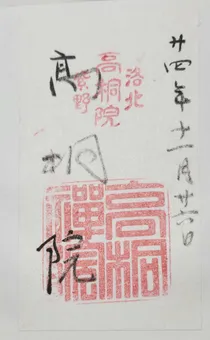 廿四年十一月廿六日
洛北
高桐院
紫野
高桐院
高桐禅院